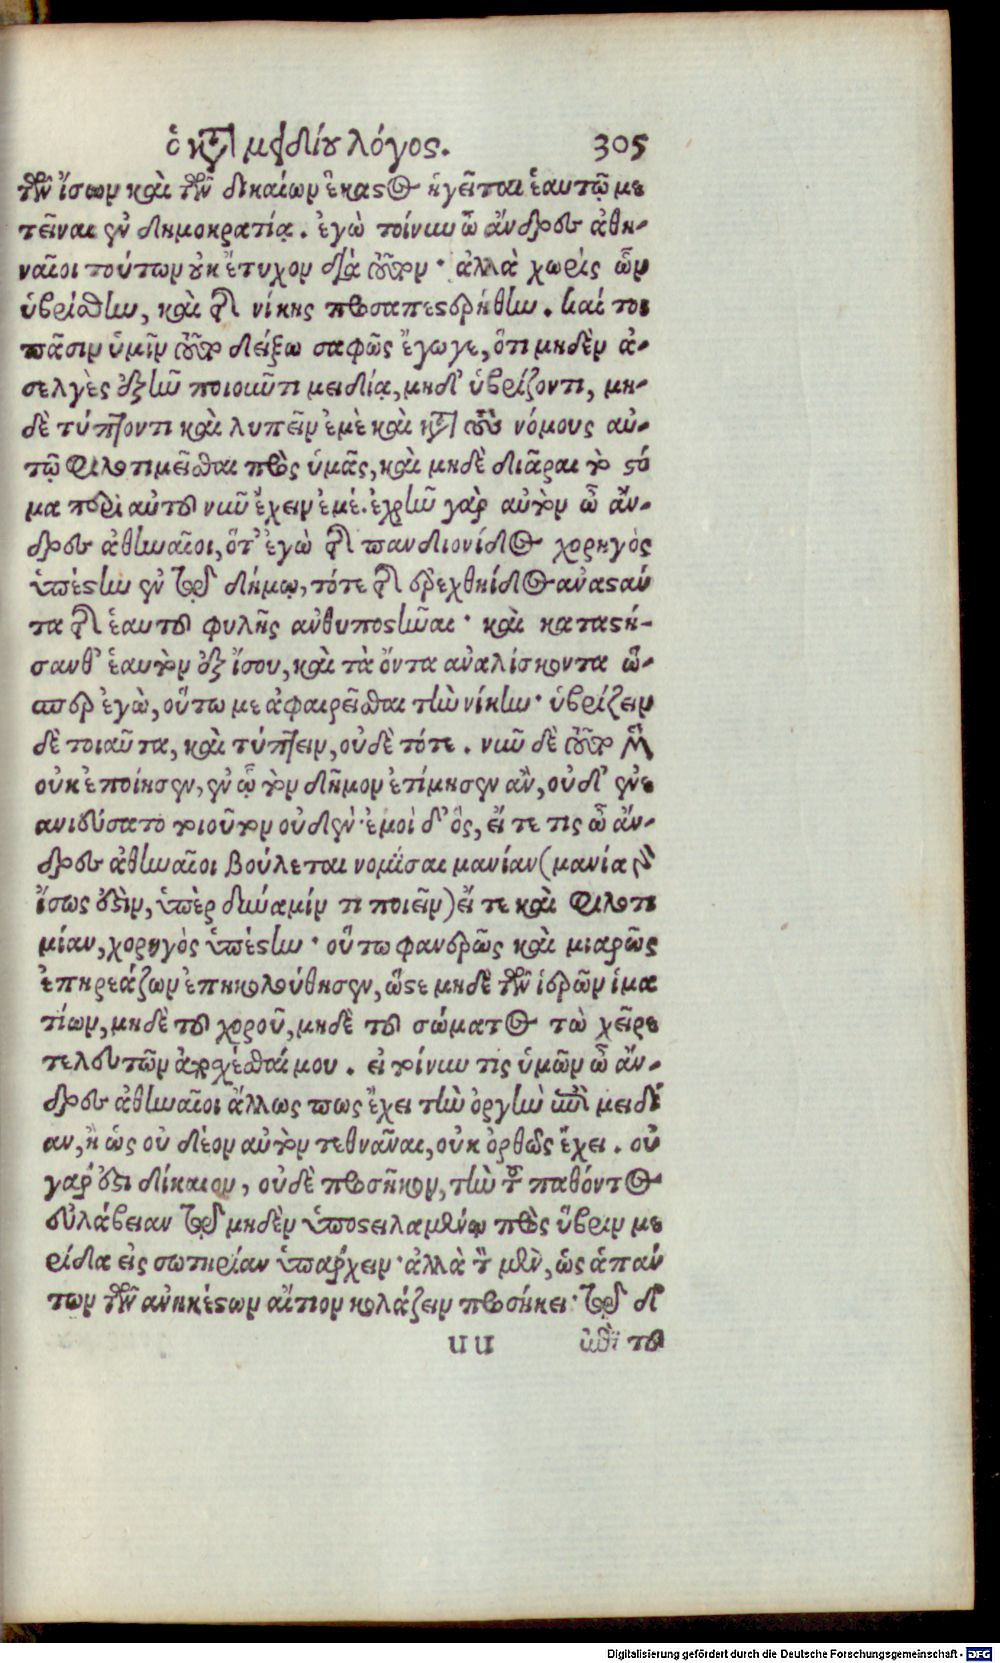 ὁ κατὰ μειδίου λόγος. 305
τῶν ἴσων καὶ τῶν δικαίων ἕκαστος ἡγεῖται ἑαυτῷ με
τεῖναι ἐν δημοκρατίᾳ. ἐγὼ τοίνυν ὦ ἄνδρες ἀθη-
ναῖοι τούτων οὐκ ἔτυχον παρὰ τούτων· ἀλλὰ χωρὶς ὧν
ὑβρίσθην, καὶ τῆς νίκης προσαπεστερήθην. καί τοι
πᾶσιν ὑμῖν τοῦτο δείξω σαφῶς ἔγωγε, ὅτι μηδὲν ἀ-
σελγὲς ἐξῆν ποιοῦντι μειδίᾳ, μηδ' ὑβρίζοντι, μη-
δὲ τύπτοντι καὶ λυπεῖν ἐμὲ καὶ κατὰ τοὺς νόμους αὐ-
τῷ φιλοτιμεῖσθαι πρὸς ὑμᾶς, καὶ μηδὲ διᾶραι τὸ στό
μα περὶ αὐτοῦ νῦν ἔχειν ἐμέ. ἐχρῆν γὰρ αὐτὸν ὦ ἄν-
δρες ἀθηναῖοι, ὅτ' ἐγὼ τῆς πανδιονίδος χορηγὸς
ὑπέστην ἐν τῷ δήμῳ, τότε τῆς ἐρεχθηίδος ἀναστάν
τα τῆς ἑαυτοῦ φυλῆς ἀνθυποστῆναι· καὶ καταστή-
σανθ' ἑαυτὸν ἐξ ἴσου, καὶ τὰ ὄντα ἀναλίσκοντα ὥ-
σπερ ἐγὼ, οὕτω με ἀφαιρεῖσθαι τὴν νίκην· ὑβρίζειν
δὲ τοιαῦτα, καὶ τύπτειν, οὐδὲ τότε. νῦν δὲ τοῦτο μὲν
οὐκ ἐποίησεν, ἐν ᾧ τὸν δῆμον ἐτίμησεν ἂν, οὐδ' ἐνε
ανιεύσατο τοιοῦτον οὐδέν· ἐμοὶ δ' ὃς, εἴ τε τις ὦ ἄν-
δρες ἀθηναῖοι βούλεται νομίσαι μανίαν (μανία γὰρ
ἴσως ἐστὶν, ὑπὲρ δύναμίν τι ποιεῖν) εἴ τε καὶ φιλοτι
μίαν, χορηγὸς ὑπέστην· οὕτω φανερῶς καὶ μιαρῶς
ἐπηρεάζων ἐπηκολούθησεν, ὥστε μηδὲ τῶν ἱερῶν ἱμα
τίων, μηδὲ τοῦ χοροῦ, μηδὲ τοῦ σώματος τὼ χεῖρε
τελευτῶν ἀποσχέσθαι μου. εἰ τοίνυν τις ὑμῶν ὦ ἄν-
δρες ἀθηναῖοι ἄλλως πως ἔχει τὴν ὀργὴν ἐπὶ μειδί
αν, ἢ ὡς οὐ δέον αὐτὸν τεθνᾶναι, οὐκ ὀρθῶς ἔχει. οὐ
γάρ ἐστι δίκαιον, οὐδὲ προσῆκον, τὴν τοῦ παθόντος
εὐλάβειαν τῷ μηδὲν ὑποστειλαμένῳ πρὸς ὕβριν με
ρίδα εἰς σωτηρίαν ὑπάρχειν· ἀλλὰ τὸν μὲν, ὡς ἁπάν
των τῶν ἀνηκέστων αἴτιον κολάζειν προσήκει· τῷ δ'
υυ ἐπὶ τοῦ
Digitalisierung gefördert durch die Deutsche Forschungsgemeinschaft - DFG